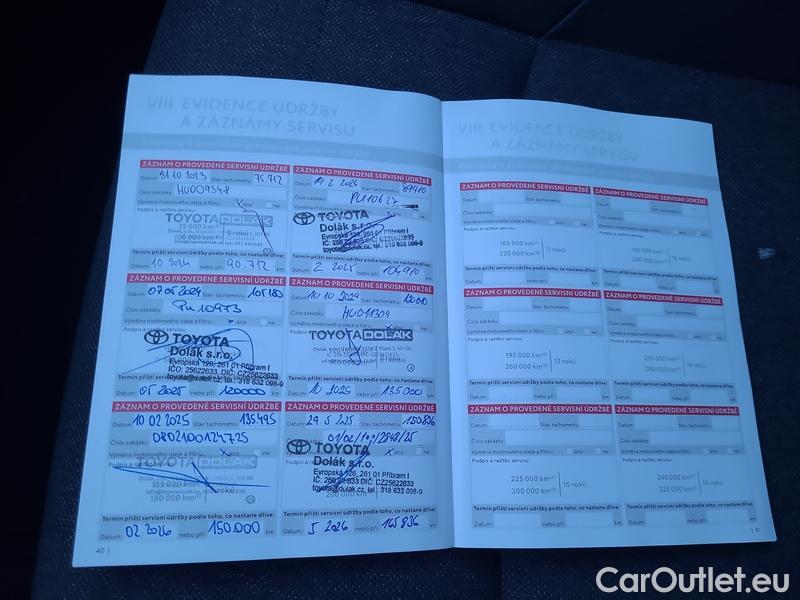 VIII. EVIDENCE ÚDRŽBY
A ZÁZNAMY SERVISU
ZÁZNAM O PROVEDENÉ SERVISNÍ ÚDRŽBĚ
Datum: 31 10 2023 Stav tachometru: 75.712
Číslo zakázky: HU009348
Výměna motorového oleje a filtru: ano ne
Podpis a razítko servisu:
TOYOTA DOLÁK
75 000 km
5 roků
Termín příští servisní údržby podle toho, co nastane dříve:
Datum: 10 2024 nebo při: 90.712 km
ZÁZNAM O PROVEDENÉ SERVISNÍ ÚDRŽBĚ
Datum: 19. 2 2024 Stav tachometru: 89910
Číslo zakázky: PU10627
TOYOTA
Dolák s.r.o.
Evropská 126, 261 01 Příbram I
toyota@dolak.cz, tel.: 318 632 098-9
Termín příští servisní údržby podle toho, co nastane dříve:
Datum: 2 2025 nebo při: 104910 km
ZÁZNAM O PROVEDENÉ SERVISNÍ ÚDRŽBĚ
Datum: 07 05 2024 Stav tachometru: 105180
Číslo zakázky: PU10973
TOYOTA
Dolák s.r.o.
Evropská 126, 261 01 Příbram I
IČO: 25622633, DIČ: CZ25622633
toyota@dolak.cz, tel.: 318 632 098-9
Termín příští servisní údržby podle toho, co nastane dříve:
Datum: 05 2025 nebo při: 120000 km
ZÁZNAM O PROVEDENÉ SERVISNÍ ÚDRŽBĚ
Datum: 10 10 2024 Stav tachometru: 120010
Číslo zakázky: HU011304
Výměna motorového oleje a filtru: ano ne
TOYOTA DOLÁK
Termín příští servisní údržby podle toho, co nastane dříve:
Datum: 10 2025 nebo při: 135000 km
ZÁZNAM O PROVEDENÉ SERVISNÍ ÚDRŽBĚ
Datum: 10 02 2025 Stav tachometru: 135495
Číslo zakázky: 0802100124725
Výměna motorového oleje a filtru: ano ne
Podpis a razítko servisu:
TOYOTA DOLÁK
135 000 km
180 000 km
Termín příští servisní údržby podle toho, co nastane dříve:
Datum: 02 2026 nebo při: 150.000 km
ZÁZNAM O PROVEDENÉ SERVISNÍ ÚDRŽBĚ
Datum: 29. 5 2025 Stav tachometru: 150836
TOYOTA
Dolák s.r.o.
Evropská 126, 261 01 Příbram I
toyota@dolak.cz, tel.: 318 632 098-9
200 000 km
Termín příští servisní údržby podle toho, co nastane dříve:
Datum: 5 2026 nebo při: 165 836 km
40 |
VIII. EVIDENCE ÚDRŽBY
A ZÁZNAMY SERVISU
ZÁZNAM O PROVEDENÉ SERVISNÍ ÚDRŽBĚ
Datum: Stav tachometru:
Číslo zakázky:
Výměna motorového oleje a filtru: ano ne
Podpis a razítko servisu:
165 000 km
220 000 km
11 roků
Termín příští servisní údržby podle toho, co nastane dříve:
Datum: nebo při: km
ZÁZNAM O PROVEDENÉ SERVISNÍ ÚDRŽBĚ
Datum: Stav tachometru:
Číslo zakázky:
Výměna motorového oleje a filtru: ano ne
Podpis a razítko servisu:
180 000 km
240 000 km
12 roků
Termín příští servisní údržby podle toho, co nastane dříve:
Datum: nebo při: km
ZÁZNAM O PROVEDENÉ SERVISNÍ ÚDRŽBĚ
Datum: Stav tachometru:
Číslo zakázky:
Výměna motorového oleje a filtru: ano ne
Podpis a razítko servisu:
195 000 km
260 000 km
13 roků
Termín příští servisní údržby podle toho, co nastane dříve:
Datum: nebo při: km
ZÁZNAM O PROVEDENÉ SERVISNÍ ÚDRŽBĚ
Datum: Stav tachometru:
Číslo zakázky:
Výměna motorového oleje a filtru: ano ne
Podpis a razítko servisu:
210 000 km
280 000 km
14 roků
Termín příští servisní údržby podle toho, co nastane dříve:
Datum: nebo při: km
ZÁZNAM O PROVEDENÉ SERVISNÍ ÚDRŽBĚ
Datum: Stav tachometru:
Číslo zakázky:
Výměna motorového oleje a filtru: ano ne
Podpis a razítko servisu:
225 000 km
300 000 km
15 roků
Termín příští servisní údržby podle toho, co nastane dříve:
Datum: nebo při: km
ZÁZNAM O PROVEDENÉ SERVISNÍ ÚDRŽBĚ
Datum: Stav tachometru:
Číslo zakázky:
Výměna motorového oleje a filtru: ano ne
Podpis a razítko servisu:
240 000 km
320 000 km
16 roků
Termín příští servisní údržby podle toho, co nastane dříve:
Datum: nebo při: km
| 41
CarOutlet.eu